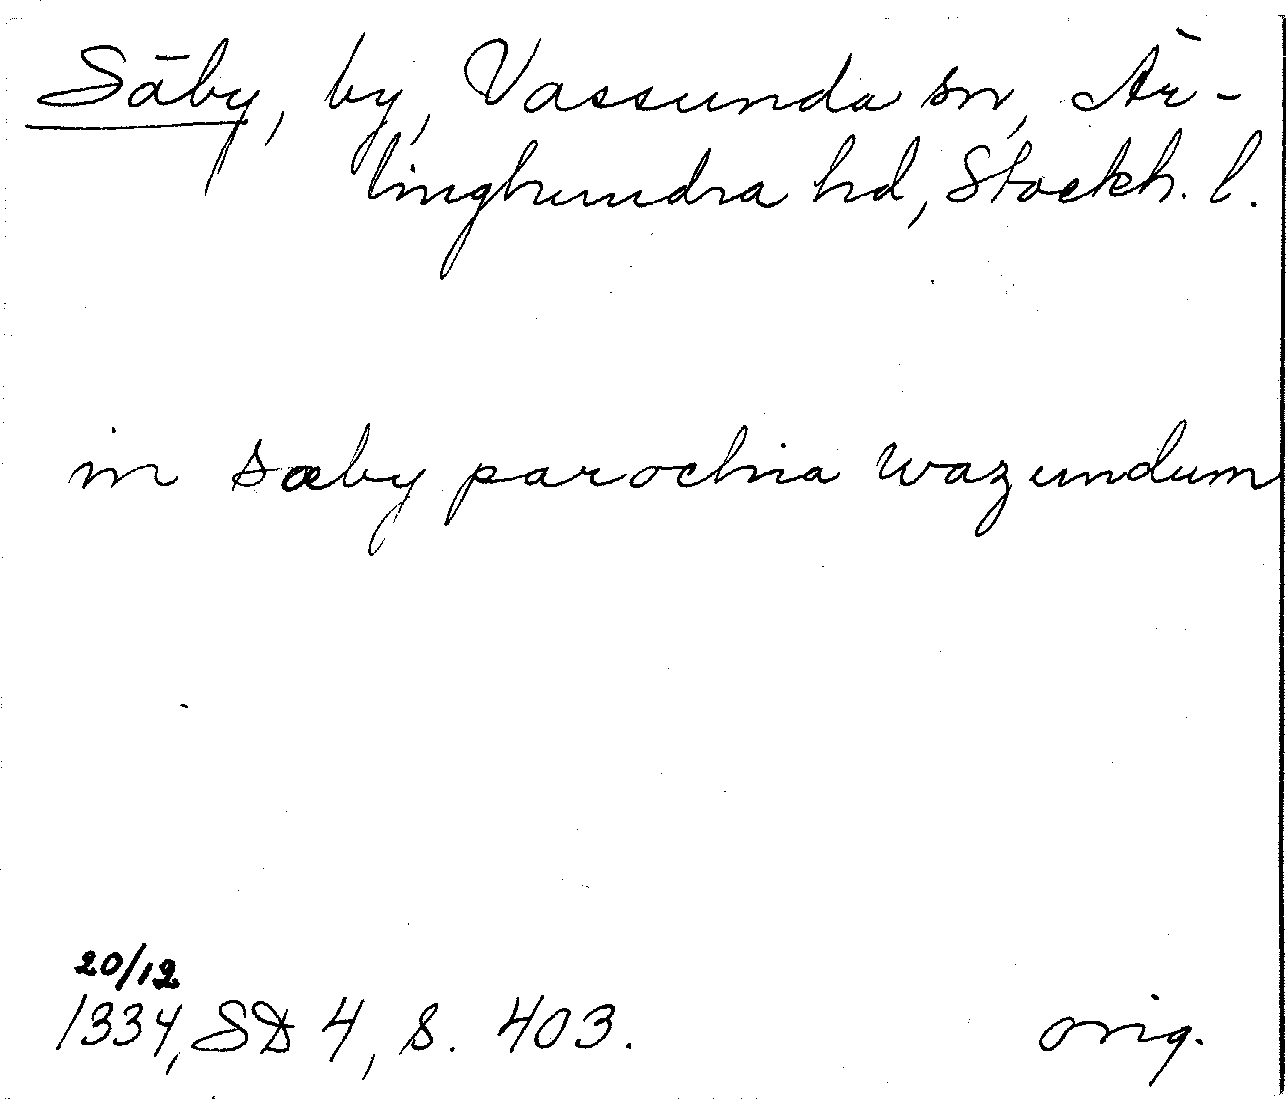 Säby, by, Vassunda sn, Är-
linghundra hd, Stockh. l.
in sæby parochia wazundum
20/12
1334, SD 4, s. 403. orig.